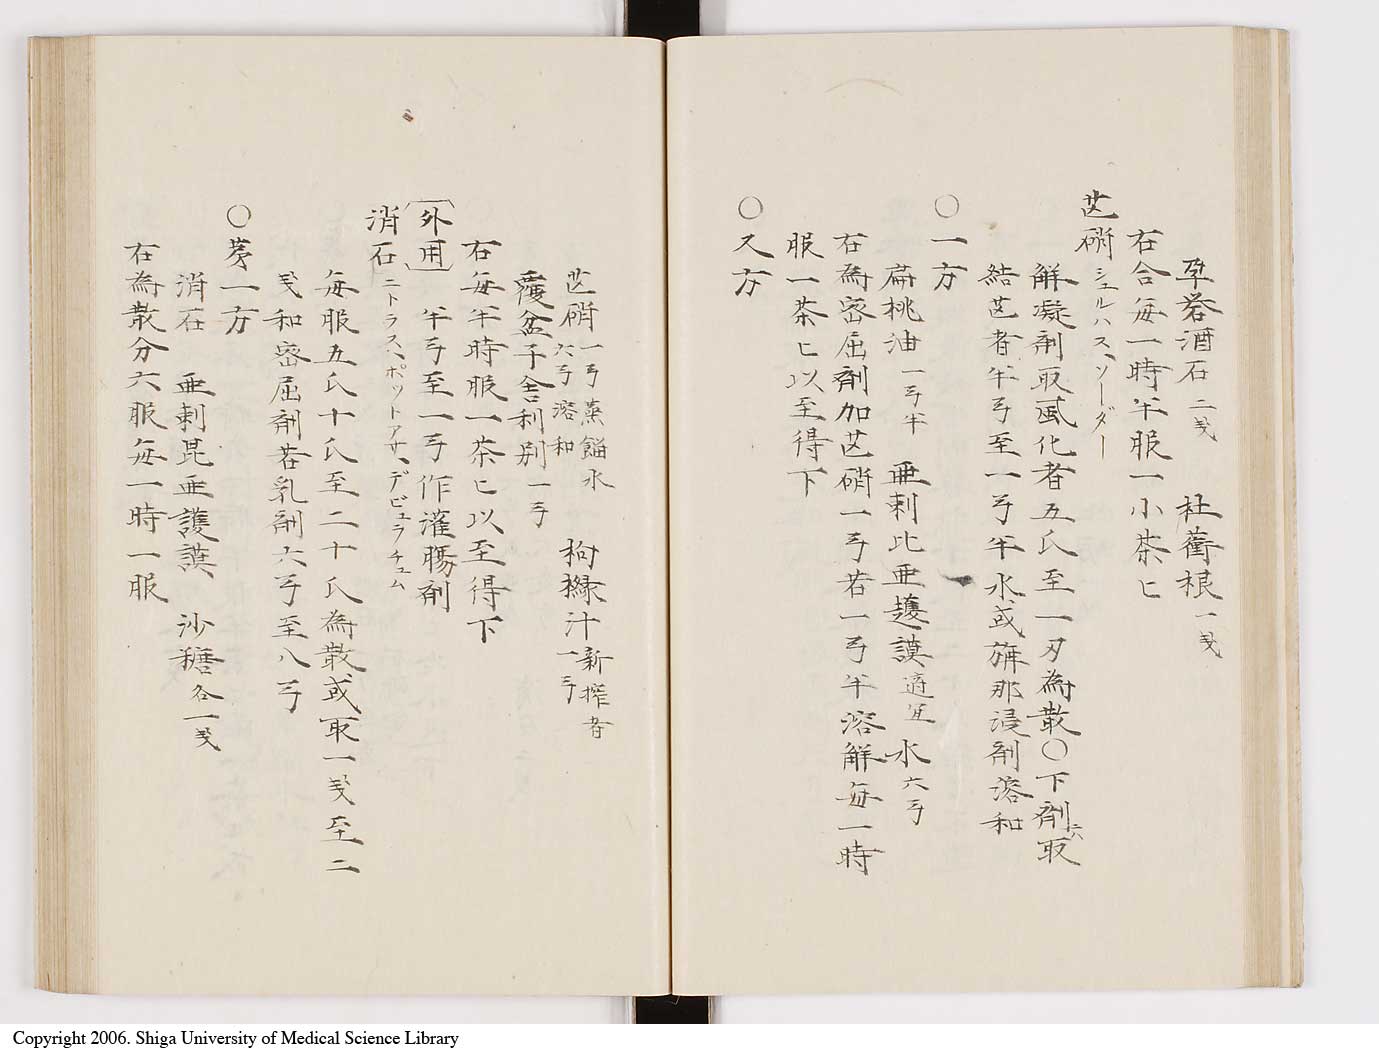 孕礬酒石 二戔 杜蘅根 一戔
右合毎一時半服一小茶匕
芒硝 シュルハス、ソーダー
解凝剤取風化者五氏至一刃為散〇下剤ニハ取
結芒者半弓至一弓半水或旃那浸剤溶和
〇一方
扁桃油 一弓半 亜剌比亜護謨 適宜 水 六弓
右為密屈剤加芒硝一弓若一弓半溶解毎一時
服一茶匕以至得下
〇又方
芒硝 一弓蒸餾水六弓溶和 枸櫞汁 新搾者一弓
覆盆子舎利別 一弓
右毎半時服一茶匕以至得下
外用 半弓至一弓作灌腸剤
消石 ニトラス、ポットアサ、デピュラチュム
毎服五氏十氏至二十氏為散或取一戔至二
戔和密屈剤若乳剤六弓至八弓
〇第一方
消石 亜剌比亜護謨 沙糖 各一戔
右為散分六服毎一時一服
Copyright 2006. Shiga University of Medical Science Library